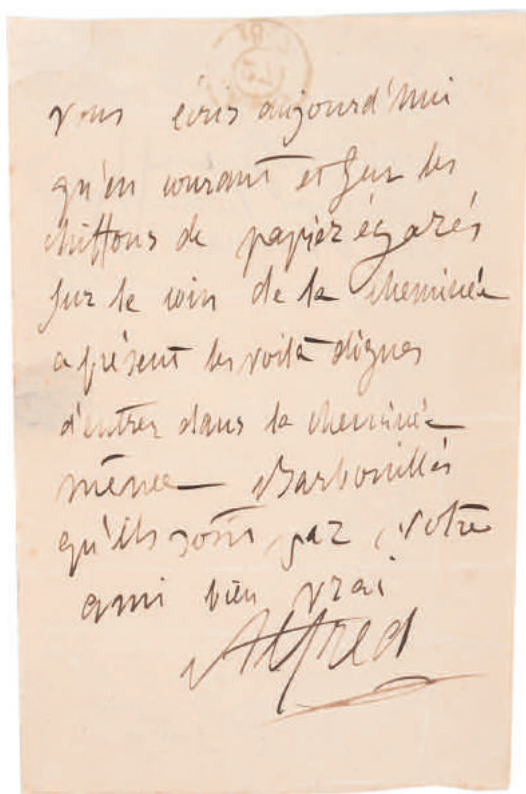 vous écris aujourd'hui
qu'en courant et sur des
chiffons de papier égarés
sur le coin de la cheminée
a présent les voilà dignes
d'entrer dans la cheminée
même Barbouillés
qu'ils sont par votre
ami bien vrai
Alfred